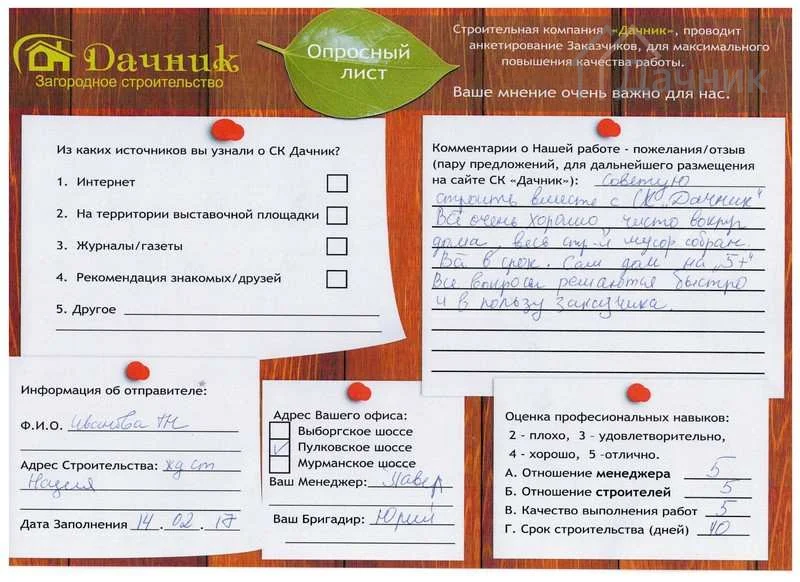 Дачник
Загородное строительство
Опросный
лист
Строительная компания «Дачник», проводит
анкетирование Заказчиков, для максимального
повышения качества работы.
Ваше мнение очень важно для нас.
Дачник
Из каких источников вы узнали о СК Дачник?
1. Интернет
2. На территории выставочной площадки
3. Журналы/газеты
4. Рекомендация знакомых/друзей
5. Другое
Комментарии о Нашей работе - пожелания/отзыв
(пару предложений, для дальнейшего размещения
на сайте СК «Дачник»): Советую
строить вместе с СК „Дачник"
Всё очень хорошо, чисто вокруг
дома, весь стр-й мусор собран.
Всё в срок. Сам дом на „5+"
Все вопросы решаются быстро
и в пользу заказчика.
Информация об отправителе:
Ф.И.О. Иванова ТН
Адрес Строительства: жд ст
Назия
Дата Заполнения 14.02.17
Адрес Вашего офиса:
Выборгское шоссе
✓ Пулковское шоссе
Мурманское шоссе
Ваш Менеджер: Павел
Ваш Бригадир: Юрий
Оценка професиональных навыков:
2 - плохо, 3 - удовлетворительно,
4 - хорошо, 5 -отлично.
А. Отношение менеджера 5
Б. Отношение строителей 5
В. Качество выполнения работ 5
Г. Срок строительства (дней) 10